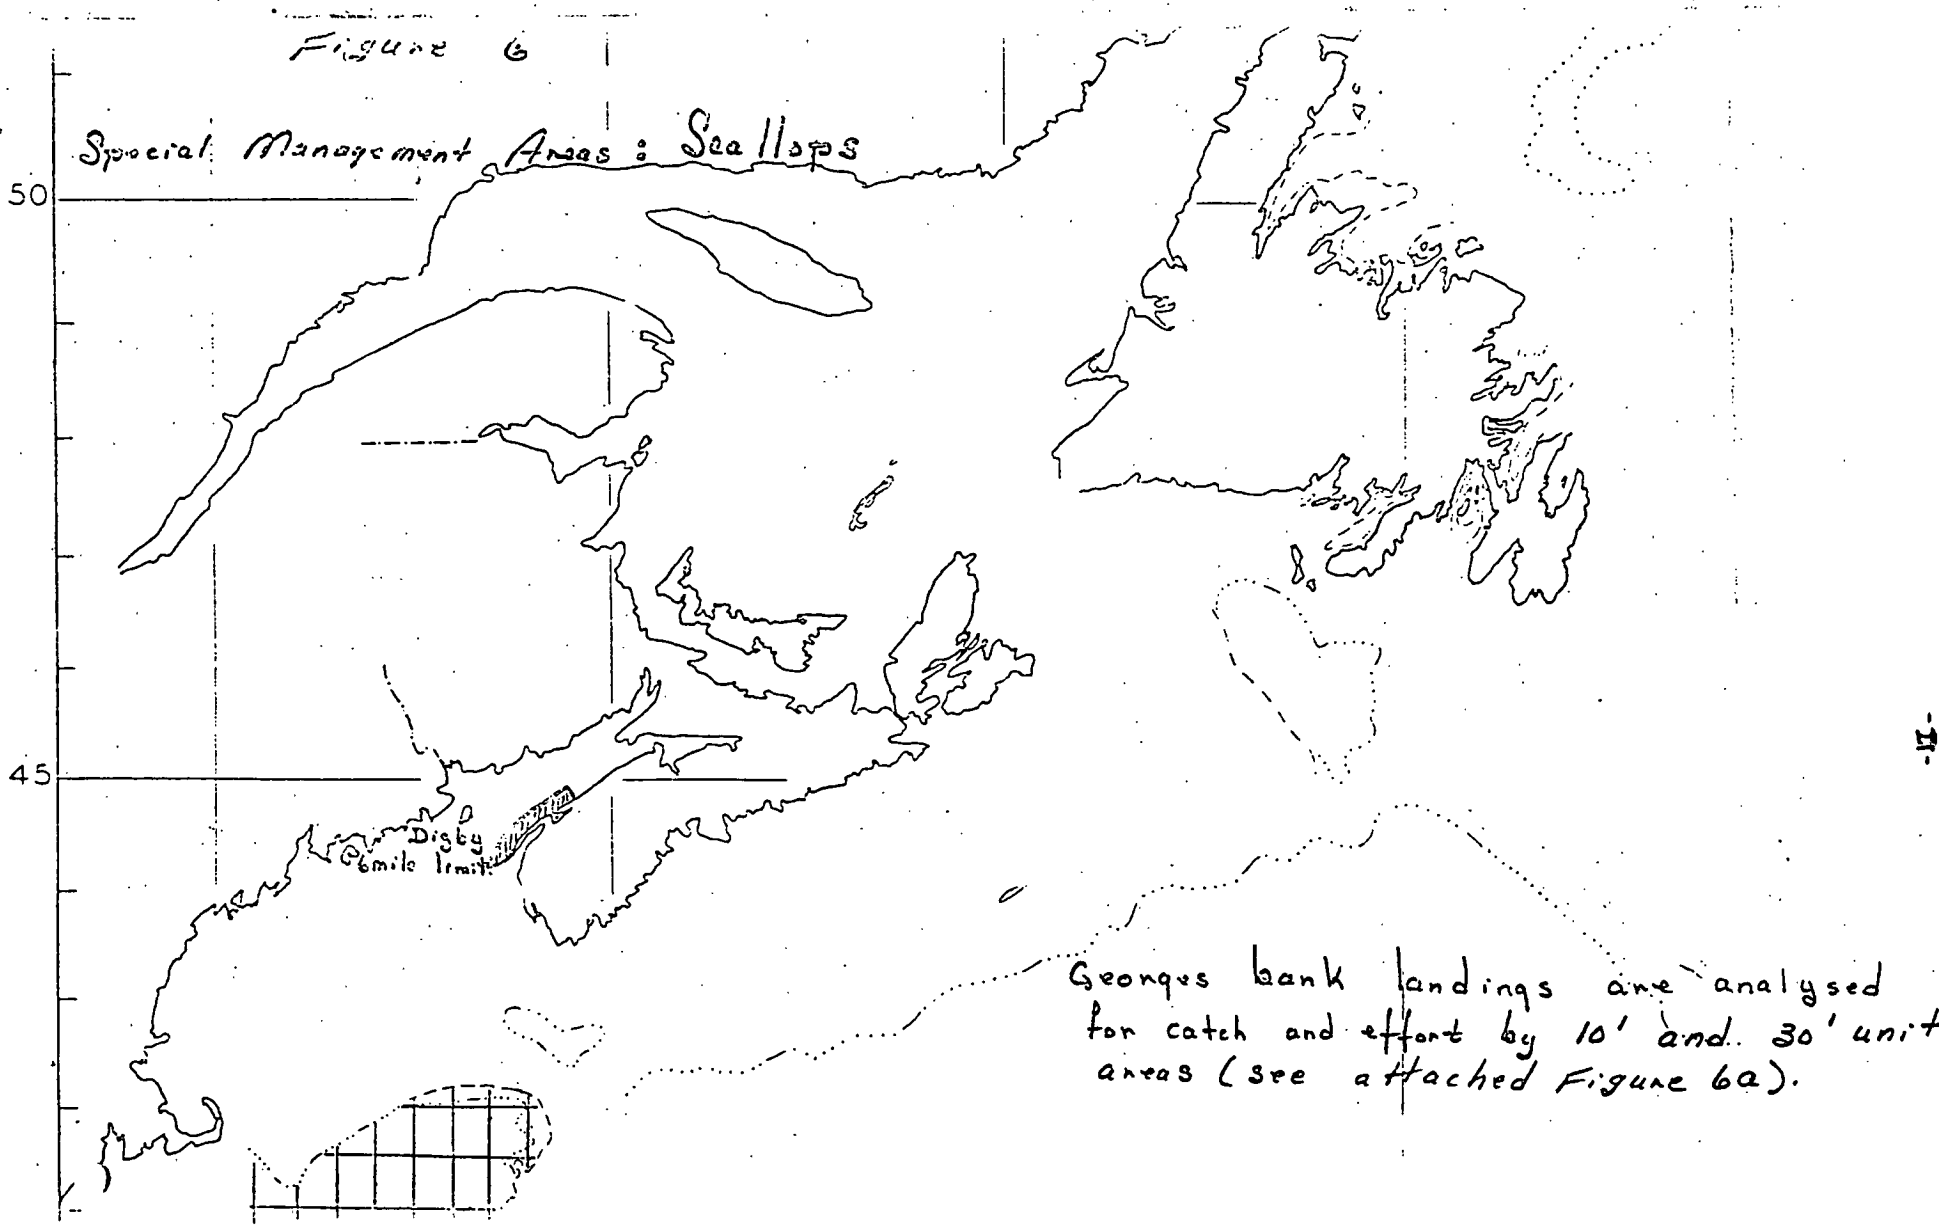 Figure 6
Special Management Areas: Scallops
50
45
Digby
6 mile limit
-11-
Georges bank landings are analysed
for catch and effort by 10' and 30' unit
areas (see attached Figure 6a).